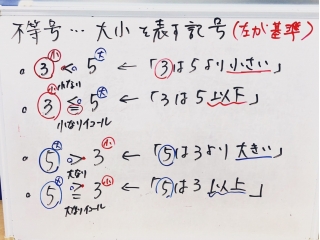 不等号…大小を表す記号(左が基準)
小 大
・ 3 < 5 ← 「3は5より小さい」
小なり
小 大
・ 3 ≦ 5 ← 「3は5以下」
小なりイコール
大 小
・ 5 > 3 ← 「5は3より大きい」
大なり
大 小
・ 5 ≧ 3 ← 「5は3以上」
大なりイコール